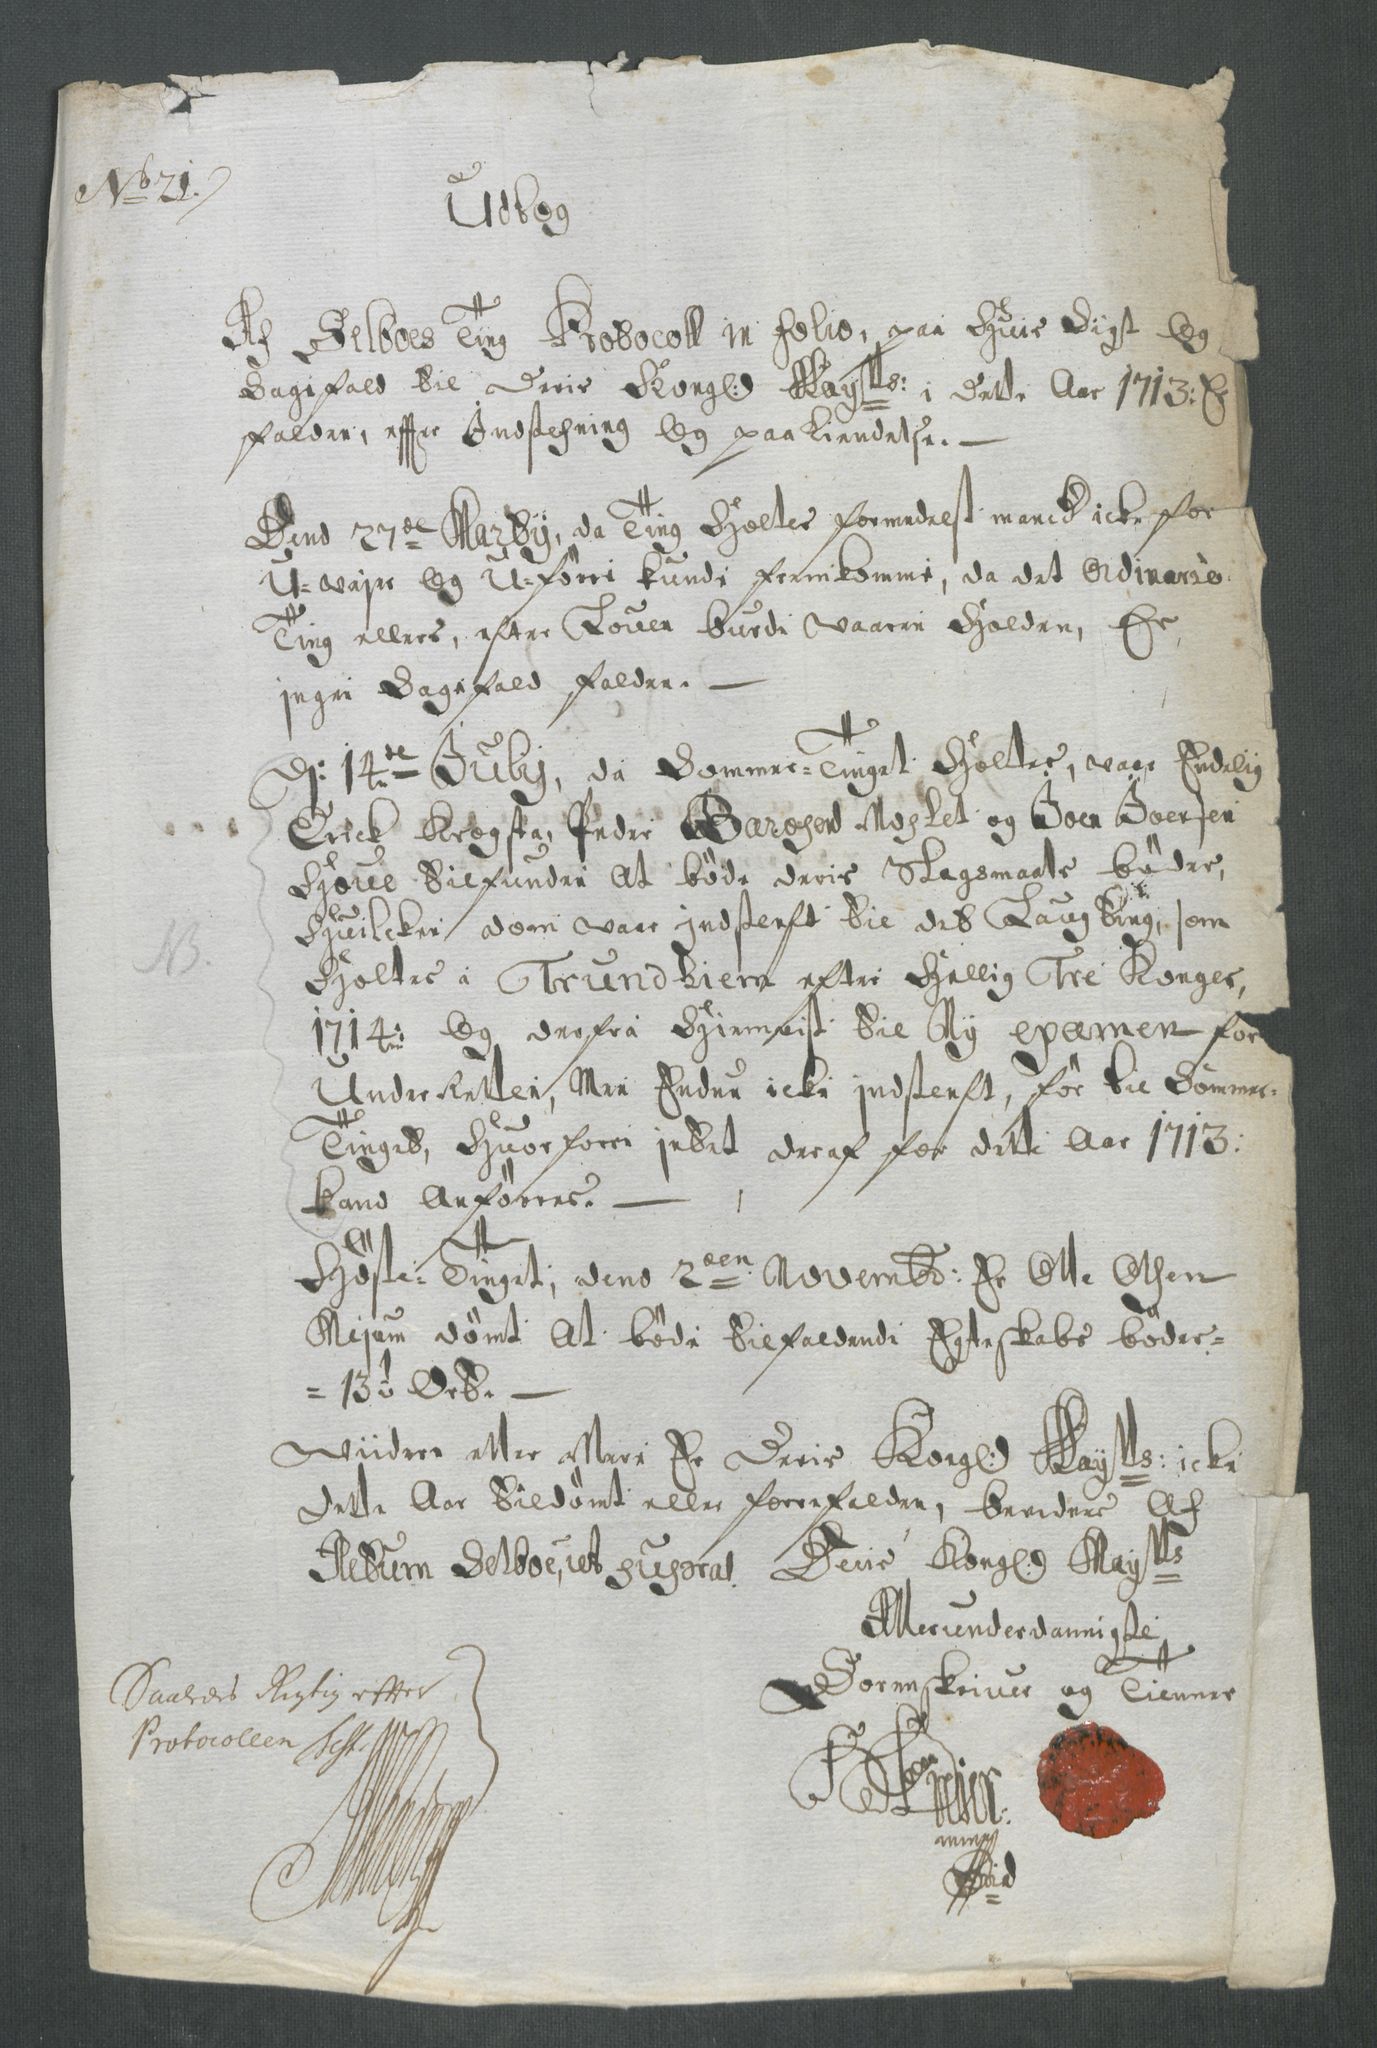 No 21.
Udtog
Af Selboes Ting Protocoll in folio, paa huis Sigt og
Sagefald til Deris Kongl: Mayts: i dette Aar 1713: Er
falden, effter Indstefning og paakiendelse. —
Dend 27de Marty, da Ting holtes formedelst mand icke for
U-vejr og U-före kunde fremkomme, da det Ordinarie
Ting ellers, efter Louen burde vaaren holden, Er
ingen Sagefald falden. —
D: 14de July, da Sommer-Tinget holtes, var Endelig
Erick Krogsta, Peder Moslet og Joen Joensen
Houe tilfunden At böde deris Slagsmaals böder,
huilcken dom var indstenft til det Laugting, som
holtes i Trundhiem efter hellig Tre Konger,
1714: Og derfra hiemvist til Ny examen for
UnderRetten, Men Endnu icke indstenft, för til Sommer-
Tinget, huorforre intet deraf for dette Aar 1713:
kand Anförres. —
Höste-Tinget, dend 2den Novembr: Er Olle Olsen
Mejum dömt At böde tilfaldende Egteskabs böder
= 13 Ort. —
Viidere eller Mere Er Deris Kongl: Mayts: icke
dette Aar tildömt eller forrefalden, bevidner Af
Actum Selboe, ut supra. Deris Kongl: Mayts
Allerunderdannigste
Sorenskriver og Tienner
NB.
Saaledes Rigtig efter
Protocollen